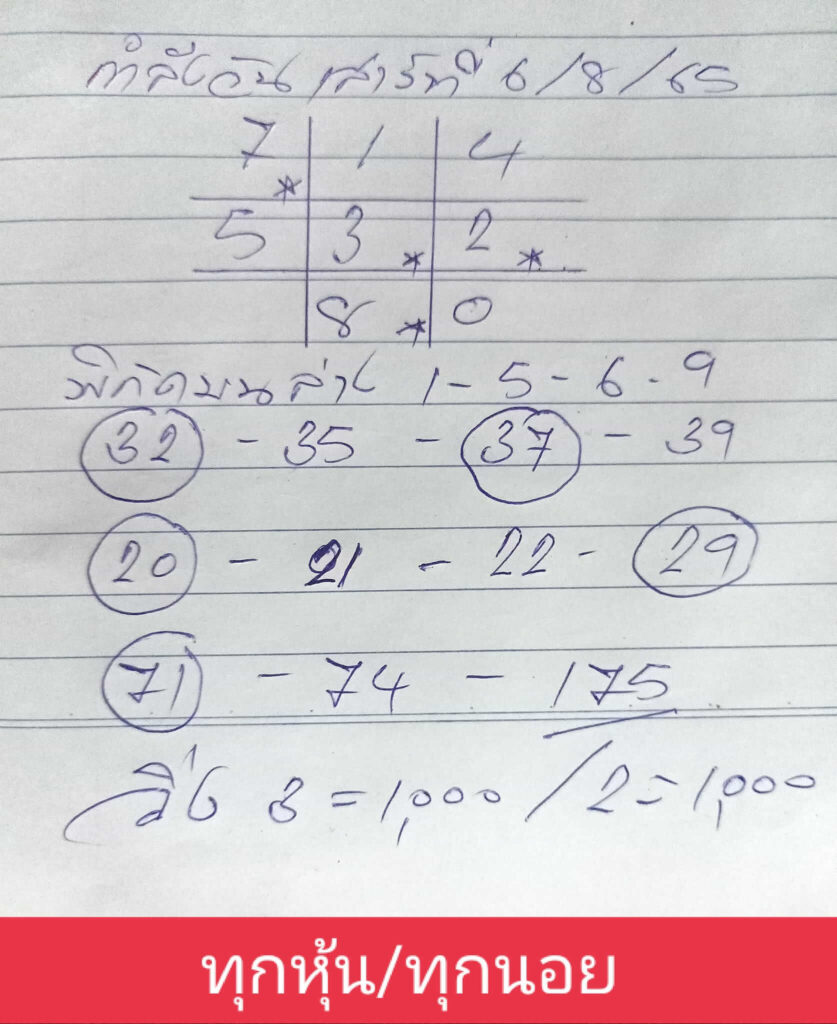 กำลังวันเสาร์ที่ 6/8/65
7 1 4
* 
5 3 * 2 *
8 * 0
พิกัดบนล่าง 1-5-6-9
32 - 35 - 37 - 39
20 - 21 - 22 - 29
71 - 74 - 175
วิ่ง 3 = 1,000 / 2 = 1,000
ทุกหุ้น/ทุกนอย